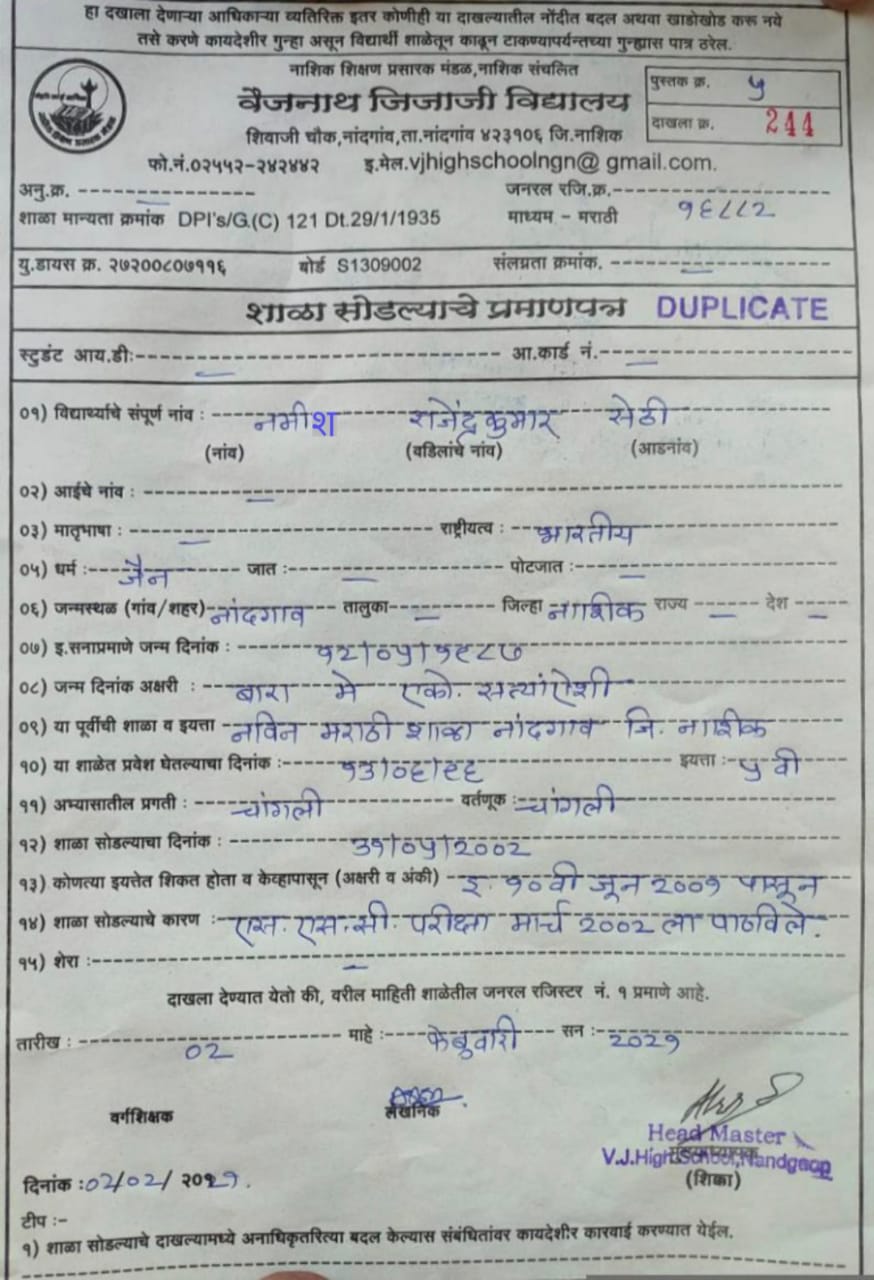 हा दाखला देणाऱ्या आधिकाऱ्या व्यतिरिक्त इतर कोणीही या दाखल्यातील नोंदीत बदल अथवा खाडोखोड करू नये
तसे करणे कायदेशीर गुन्हा असून विद्यार्थी शाळेतून काढून टाकण्यापर्यन्तच्या गुन्ह्यास पात्र ठरेल.
नाशिक शिक्षण प्रसारक मंडळ,नाशिक संचलित
पुस्तक क्र. ५
वैजनाथ जिजाजी विद्यालय
दाखला क्र. 244
शिवाजी चौक,नांदगांव,ता.नांदगांव ४२३१०६ जि.नाशिक
फो.नं.०२५५२-२४२४४२ इ.मेल.vjhighschoolngn@ gmail.com.
अनु.क्र. ---------------- जनरल रजि.क्र.--------------------
शाळा मान्यता क्रमांक DPI's/G.(C) 121 Dt.29/1/1935 माध्यम - मराठी १६८८२
यु.डायस क्र. २७२००८०७११६ बोर्ड S1309002 संलग्नता क्रमांक. --------------------
शाळा सोडल्याचे प्रमाणपत्र DUPLICATE
स्टुडंट आय.डी:--------------------------------- आ.कार्ड नं.--------------------
०१) विद्यार्थ्याचे संपूर्ण नांव : नमीश राजेंद्रकुमार सेठी
(नांव) (वडिलांचे नांव) (आडनांव)
०२) आईचे नांव : --------------------
०३) मातृभाषा : -------------------- राष्ट्रीयत्व : भारतीय
०५) धर्म : जैन जात : -------- पोटजात : --------
०६) जन्मस्थळ (गांव/शहर) नांदगाव तालुका -------- जिल्हा नाशिक राज्य ------ देश ------
०७) इ.सनाप्रमाणे जन्म दिनांक : १२/०५/१९८७
०८) जन्म दिनांक अक्षरी : बारा मे एको. सत्यांऐशी
०९) या पूर्वीची शाळा व इयत्ता नविन मराठी शाळा नांदगाव जि. नाशीक
१०) या शाळेत प्रवेश घेतल्याचा दिनांक : १३/०६/९६ इयत्ता : ५ वी
११) अभ्यासातील प्रगती : चांगली वर्तणूक : चांगली
१२) शाळा सोडल्याचा दिनांक : ३१/०५/२००२
१३) कोणत्या इयत्तेत शिकत होता व केव्हापासून (अक्षरी व अंकी) इ. १०वी जून २००१ पासून
१४) शाळा सोडल्याचे कारण : एस. एस. सी. परीक्षा मार्च २००२ ला पाठविले.
१५) शेरा :--------------------
दाखला देण्यात येतो की, वरील माहिती शाळेतील जनरल रजिस्टर नं. १ प्रमाणे आहे.
तारीख : ०२ माहे : फेब्रुवारी सन : २०२१
वर्गशिक्षक लेखनिक
Head Master
V.J.High School,Nandgaon
दिनांक : ०२/०२/ २०२१. (शिक्का)
टीप :-
१) शाळा सोडल्याचे दाखल्यामध्ये अनाधिकृतरित्या बदल केल्यास संबंधितांवर कायदेशीर कारवाई करण्यात येईल.